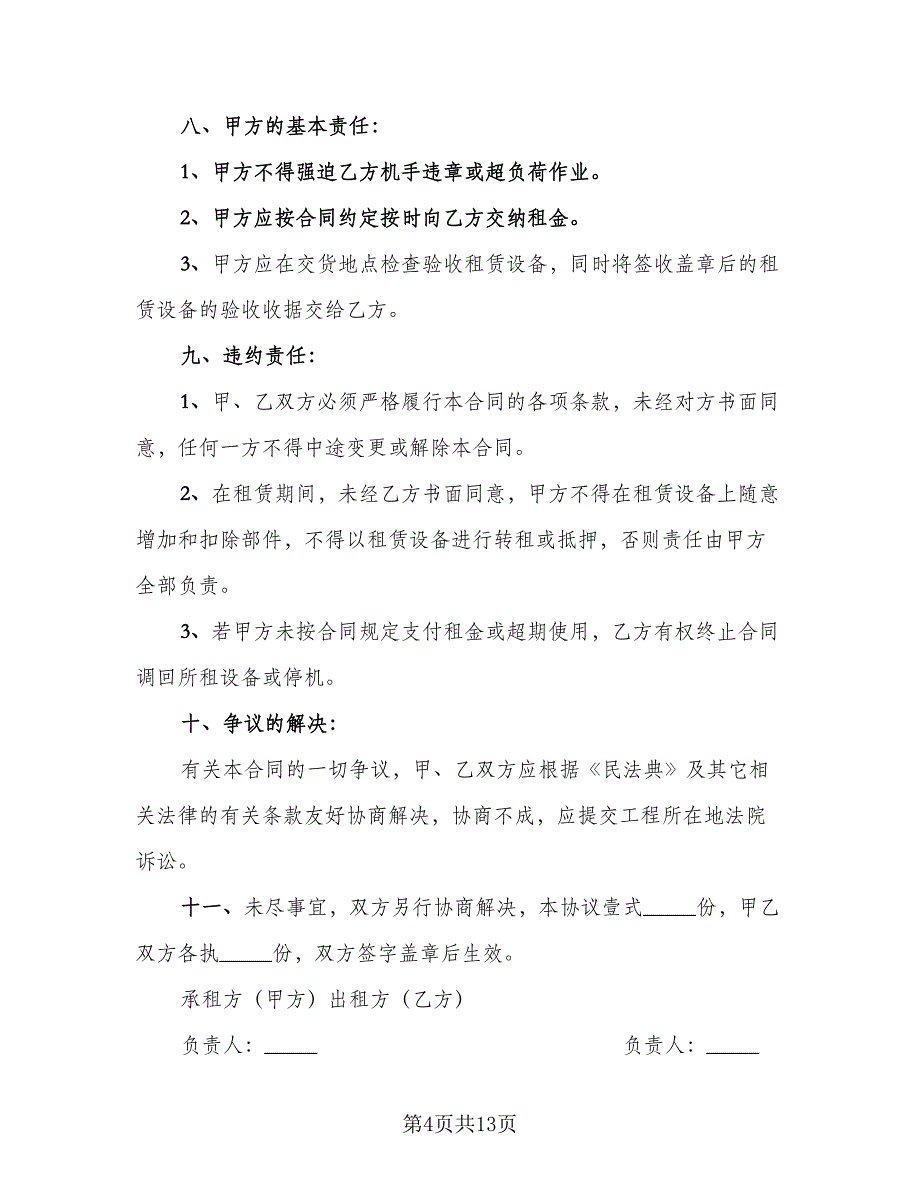 八、甲方的基本责任：
1、甲方不得强迫乙方机手违章或超负荷作业。
2、甲方应按合同约定按时向乙方交纳租金。
3、甲方应在交货地点检查验收租赁设备，同时将签收盖章后的租
赁设备的验收收据交给乙方。
九、违约责任：
1、甲、乙双方必须严格履行本合同的各项条款，未经对方书面同
意，任何一方不得中途变更或解除本合同。
2、在租赁期间，未经乙方书面同意，甲方不得在租赁设备上随意
增加和扣除部件，不得以租赁设备进行转租或抵押，否则责任由甲方
全部负责。
3、若甲方未按合同规定支付租金或超期使用，乙方有权终止合同
调回所租设备或停机。
十、争议的解决：
有关本合同的一切争议，甲、乙双方应根据《民法典》及其它相
关法律的有关条款友好协商解决，协商不成，应提交工程所在地法院
诉讼。
十一、未尽事宜，双方另行协商解决，本协议壹式_____份，甲乙
双方各执_____份，双方签字盖章后生效。
承租方（甲方）出租方（乙方）
负责人：_____ 负责人：_____
第4页共13页